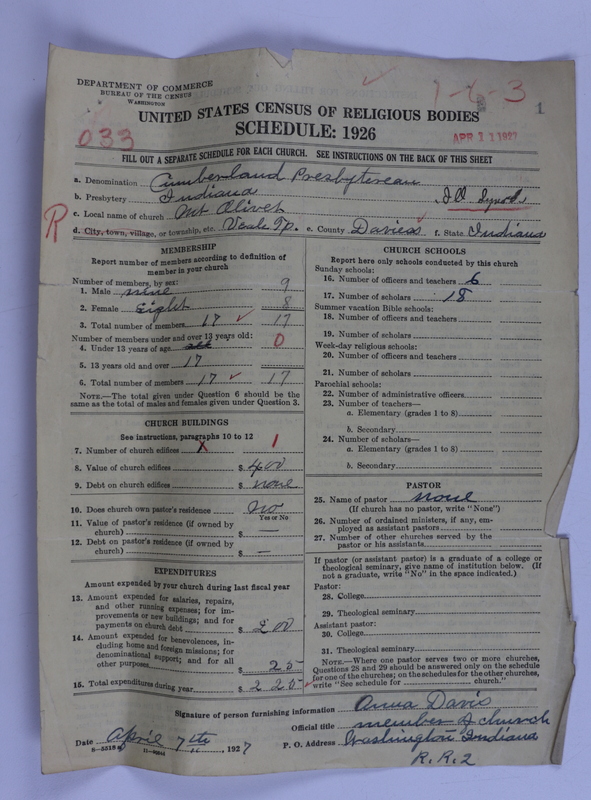 DEPARTMENT OF COMMERCE
BUREAU OF THE CENSUS
WASHINGTON
1-6-3
1
UNITED STATES CENSUS OF RELIGIOUS BODIES
SCHEDULE: 1926
033
APR 11 1927
FILL OUT A SEPARATE SCHEDULE FOR EACH CHURCH. SEE INSTRUCTIONS ON THE BACK OF THIS SHEET
a. Denomination Cumberland Presbyterean
b. Presbytery Indiana
c. Local name of church Mt Olivet
R
d. City, town, village, or township, etc. Veale Tp. e. County Daviess f. State Indiana
MEMBERSHIP
Report number of members according to definition of
member in your church
Number of members, by sex:
1. Male nine 9
2. Female Eight 8
3. Total number of members 17 ✓ 17
Number of members under and over 13 years old:
4. Under 13 years of age 0
5. 13 years old and over 17
6. Total number of members 17 ✓ 17
NOTE.—The total given under Question 6 should be
the same as the total of males and females given under Question 3.
CHURCH BUILDINGS
See instructions, paragraphs 10 to 12
7. Number of church edifices X 1
8. Value of church edifices $ 400
9. Debt on church edifices $ none
10. Does church own pastor's residence No
Yes or No
11. Value of pastor's residence (if owned by
church) $ —
12. Debt on pastor's residence (if owned by
church) $ —
EXPENDITURES
Amount expended by your church during last fiscal year
13. Amount expended for salaries, repairs,
and other running expenses; for im-
provements or new buildings; and for
payments on church debt $ 200
14. Amount expended for benevolences, in-
cluding home and foreign missions; for
denominational support; and for all
other purposes $ 25
15. Total expenditures during year $ 225 ✓
CHURCH SCHOOLS
Report here only schools conducted by this church
Sunday schools:
16. Number of officers and teachers 6
17. Number of scholars 18
Summer vacation Bible schools:
18. Number of officers and teachers
19. Number of scholars
Week-day religious schools:
20. Number of officers and teachers
21. Number of scholars
Parochial schools:
22. Number of administrative officers
23. Number of teachers—
a. Elementary (grades 1 to 8)
b. Secondary
24. Number of scholars—
a. Elementary (grades 1 to 8)
b. Secondary
PASTOR
25. Name of pastor none
(If church has no pastor, write "None")
26. Number of ordained ministers, if any, em-
ployed as assistant pastors
27. Number of other churches served by the
pastor or his assistants
If pastor (or assistant pastor) is a graduate of a college or
theological seminary, give name of institution below. (If
not a graduate, write "No" in the space indicated.)
Pastor:
28. College
29. Theological seminary
Assistant pastor:
30. College
31. Theological seminary
NOTE.—Where one pastor serves two or more churches,
Questions 28 and 29 should be answered only on the schedule
for one of the churches; on the schedules for the other churches,
write "See schedule for church."
Signature of person furnishing information Anna Davis
Official title member of church
Date April 7th, 1927 P. O. Address Washington Indiana
R.R.2